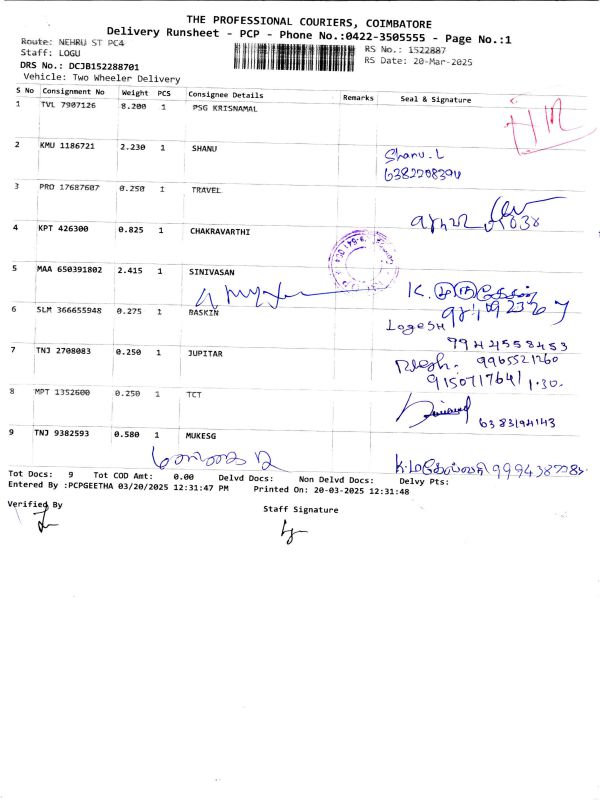 THE PROFESSIONAL COURIERS, COIMBATORE
Delivery Runsheet - PCP - Phone No.:0422-3505555 - Page No.:1
Route: NEHRU ST PC4
RS No.: 1522887
Staff: LOGU
RS Date: 20-Mar-2025
DRS No.: DCJB152288701
Vehicle: Two Wheeler Delivery
S No Consignment No Weight PCS Consignee Details Remarks Seal & Signature
1 TVL 7907126 8.200 1 PSG KRISNAMAL
2 KMU 1186721 2.230 1 SHANU
Shanu.L
3 PRO 17687607 0.250 1 TRAVEL
4 KPT 426300 0.825 1 CHAKRAVARTHI
5 MAA 650391802 2.415 1 SINIVASAN
6 SLM 366655948 0.275 1 BASKIN
Logesh
7944558453
7 TNJ 2708083 0.250 1 JUPITAR
9965521260
9150717641 1.30.
8 MPT 1352600 0.250 1 TCT
6383194143
9 TNJ 9382593 0.580 1 MUKESG
Tot Docs: 9 Tot COD Amt: 0.00 Delvd Docs: Non Delvd Docs: Delvy Pts:
Entered By :PCPGEETHA 03/20/2025 12:31:47 PM Printed On: 20-03-2025 12:31:48
Verified By
Staff Signature